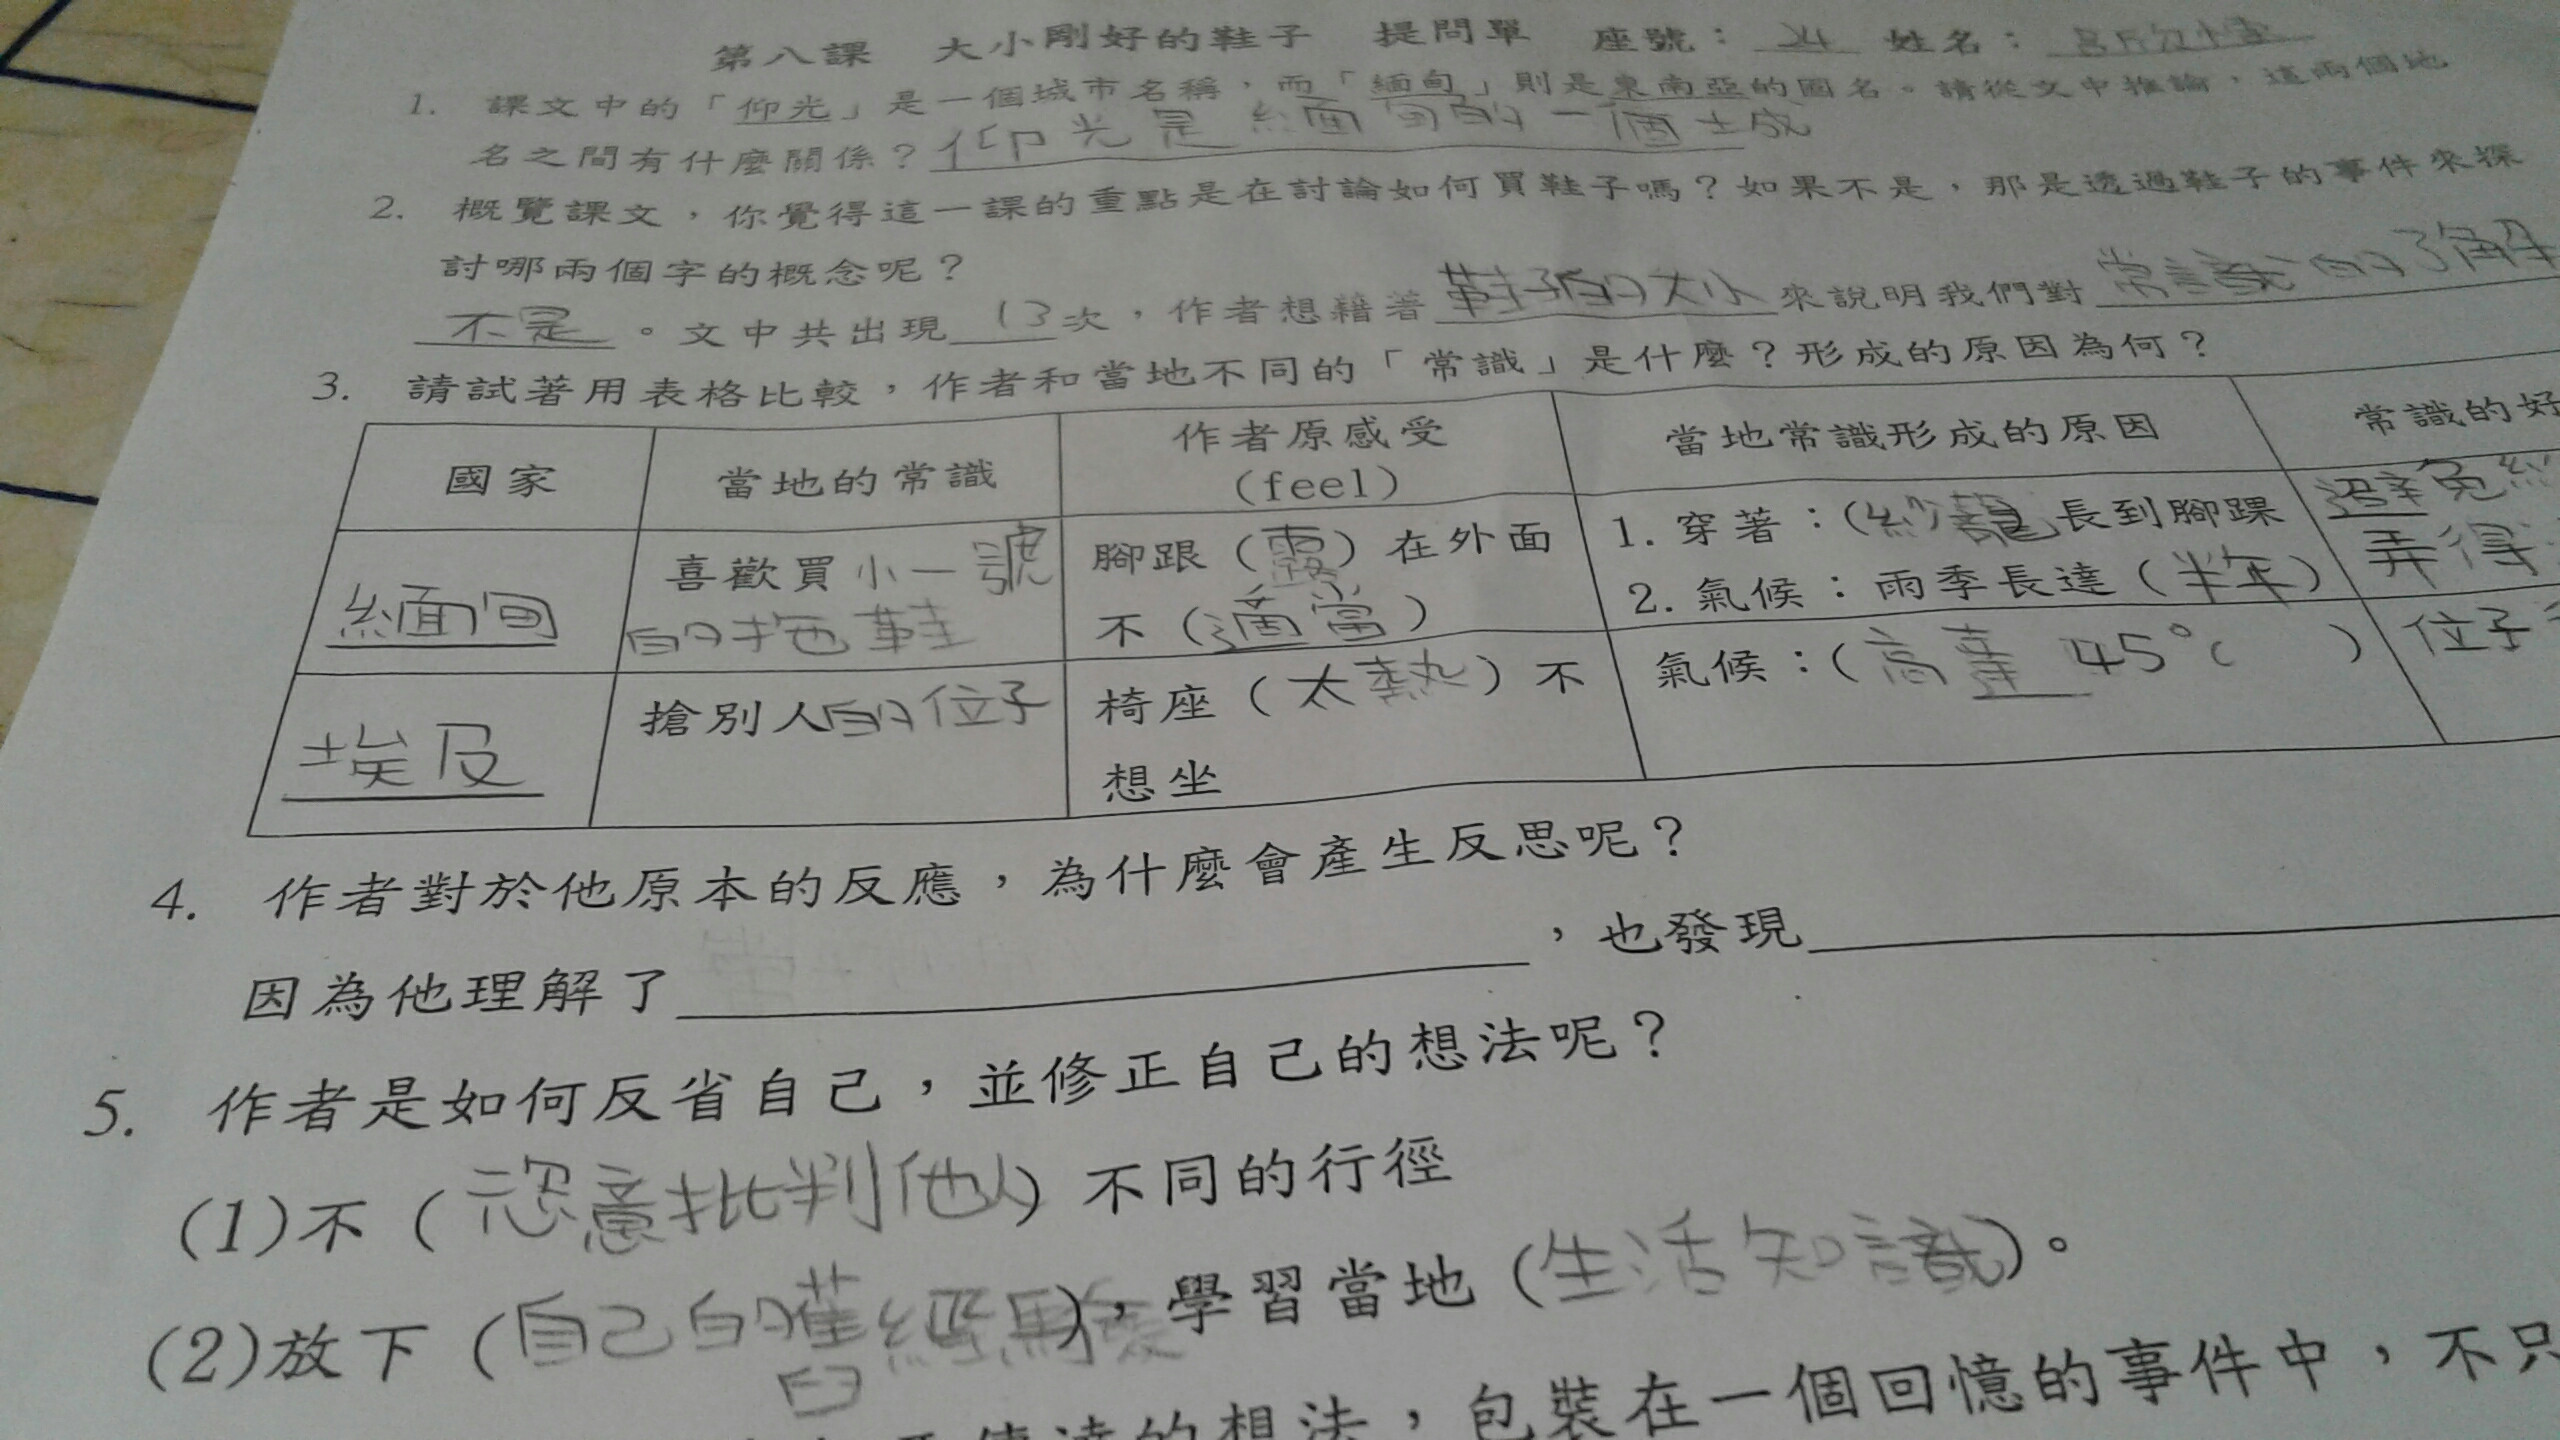 第八課 大小剛好的鞋子 提問單 座號：24 姓名：
1. 課文中的「仰光」是一個城市名稱，而「緬甸」則是東南亞的國名。請從文中推論，這兩個地
名之間有什麼關係？仰光是緬甸的一個城
2. 概覽課文，你覺得這一課的重點是在討論如何買鞋子嗎？如果不是，那是透過鞋子的事件來探
討哪兩個字的概念呢？
不是。文中共出現13次，作者想藉著鞋子的大小來說明我們對常識的了解
3. 請試著用表格比較，作者和當地不同的「常識」是什麼？形成的原因為何？
國家 當地的常識 作者原感受 當地常識形成的原因 常識的好
(feel)
緬甸 喜歡買小一號 腳跟（露）在外面 1. 穿著：(紗龍長到腳踝 避免
的拖鞋 不（適當） 2. 氣候：雨季長達（半年） 弄得
埃及 搶別人的位子 椅座（太熱）不 氣候：(高達 45°C ) 位子
想坐
4. 作者對於他原本的反應，為什麼會產生反思呢？
因為他理解了，也發現
5. 作者是如何反省自己，並修正自己的想法呢？
(1)不（恣意批判他人）不同的行徑
(2)放下（自己的舊經驗），學習當地（生活知識）。
傳達的想法，包裝在一個回憶的事件中，不只